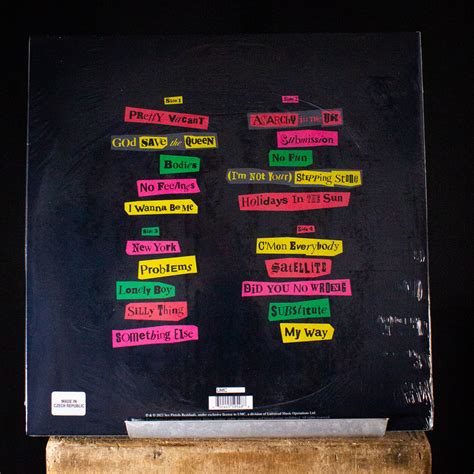 Side 1
Pretty Vacant
GOD SAVE the QUEEN
Bodies
No Feelings
I Wanna Be Me
Side 2
ANARCHY in the UK
Submission
No Fun
(I'm Not Your) Stepping Stone
Holidays In THE Sun
Side 3
New York
Problems
Lonely Boy
Silly Thing
Something Else
Side 4
C'mon Everybody
SATELLITE
DID YOU NO WRONG
Substitute
My Way
MADE IN
CZECH REPUBLIC
UMC
℗ & © 2022 Sex Pistols Residuals, under exclusive license to UMC, a division of Universal Music Operations Ltd.